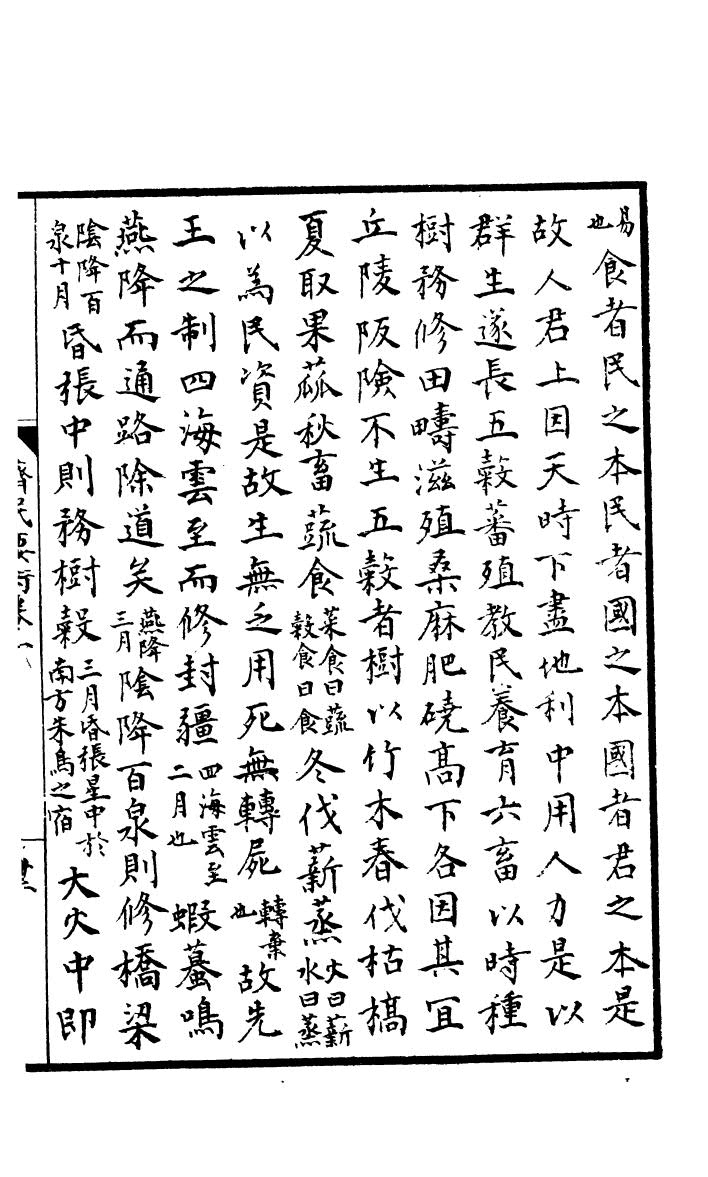 易也食者民之本民者國之本國者君之本是
故人君上因天時下盡地利中用人力是以
群生遂長五穀蕃殖教民養育六畜以時種
樹務修田疇滋殖桑麻肥磽高下各因其宜
丘陵阪險不生五穀者樹以竹木春伐枯槁
夏取果蓏秋畜蔬食菜食曰蔬穀食曰食冬伐薪蒸火曰薪水曰蒸
以為民資是故生無乏用死無轉屍轉棄也故先
王之制四海雲至而修封疆四海雲至二月也蝦蟇鳴
燕降而通路除道矣燕降三月陰降百泉則修橋梁
陰降百泉十月昏張中則務樹穀三月昏張星中於南方朱鳥之宿大火中即
齊民要術卷一